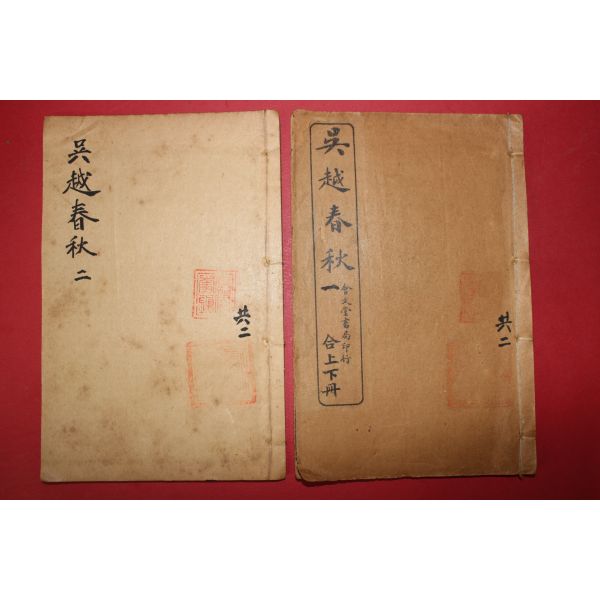 吳越春秋 二
共二
吳越春秋 一
會文堂書局印行
合上下冊
共二